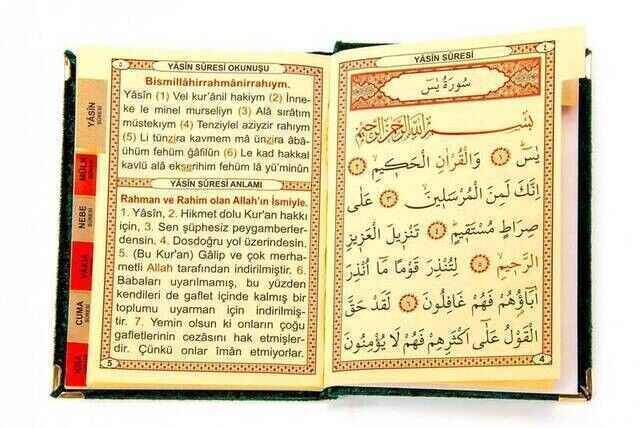 ٥
YÂSİN SÛRESİ OKUNUŞU
Bismillâhirrahmânirrahıym.
Yâsîn (1) Vel kur'ânil hakiym (2) İnne-
ke le minel murseliyn (3) Alâ sırâtım
müstekıym (4) Tenziylel aziyzir rahıym
(5) Li tünzira kavmem mâ ünzira âbâ-
ühüm fehüm ğâfilûn (6) Le kad hakkal
kavlü alâ ekserihim fehüm lâ yü'minûn
YÂSİN SÛRESİ ANLAMI
Rahman ve Rahim olan Allah'ın İsmiyle.
1. Yâsîn, 2. Hikmet dolu Kur'an hakkı
için, 3. Sen şüphesiz peygamberler-
densin. 4. Dosdoğru yol üzerindesin.
5. (Bu Kur'an) Gâlip ve çok merha-
metli Allah tarafından indirilmiştir. 6.
Babaları uyarılmamış, bu yüzden
kendileri de gaflet içinde kalmış bir
toplumu uyarman için indirilmiş-
tir. 7. Yemin olsun ki onların çoğu
gafletlerinin cezasını hak etmişler-
dir. Çünkü onlar îmân etmiyorlar.
5
YÂSİN SÛRESİ
MÜLK SÛRESİ
NEBE SÛRESİ
VÂKIA
CUMA SÛRESİ
YÂSİN SÛRESİ
٤
سُورَةُ يٰسٓ
بِسْمِ اللّٰهِ الرَّحْمٰنِ الرَّحِيمِ
يٰسٓ ﴿١﴾ وَالْقُرْاٰنِ الْحَكِيمِ ﴿٢﴾
اِنَّكَ لَمِنَ الْمُرْسَلِينَ ﴿٣﴾ عَلٰى
صِرَاطٍ مُسْتَقِيمٍ ﴿٤﴾ تَنْزِيلَ الْعَزِيزِ
الرَّحِيمِ ﴿٥﴾ لِتُنْذِرَ قَوْمًا مَٓا اُنْذِرَ
اٰبَٓاؤُهُمْ فَهُمْ غَافِلُونَ ﴿٦﴾ لَقَدْ حَقَّ
الْقَوْلُ عَلٰٓى اَكْثَرِهِمْ فَهُمْ لَا يُؤْمِنُونَ
4